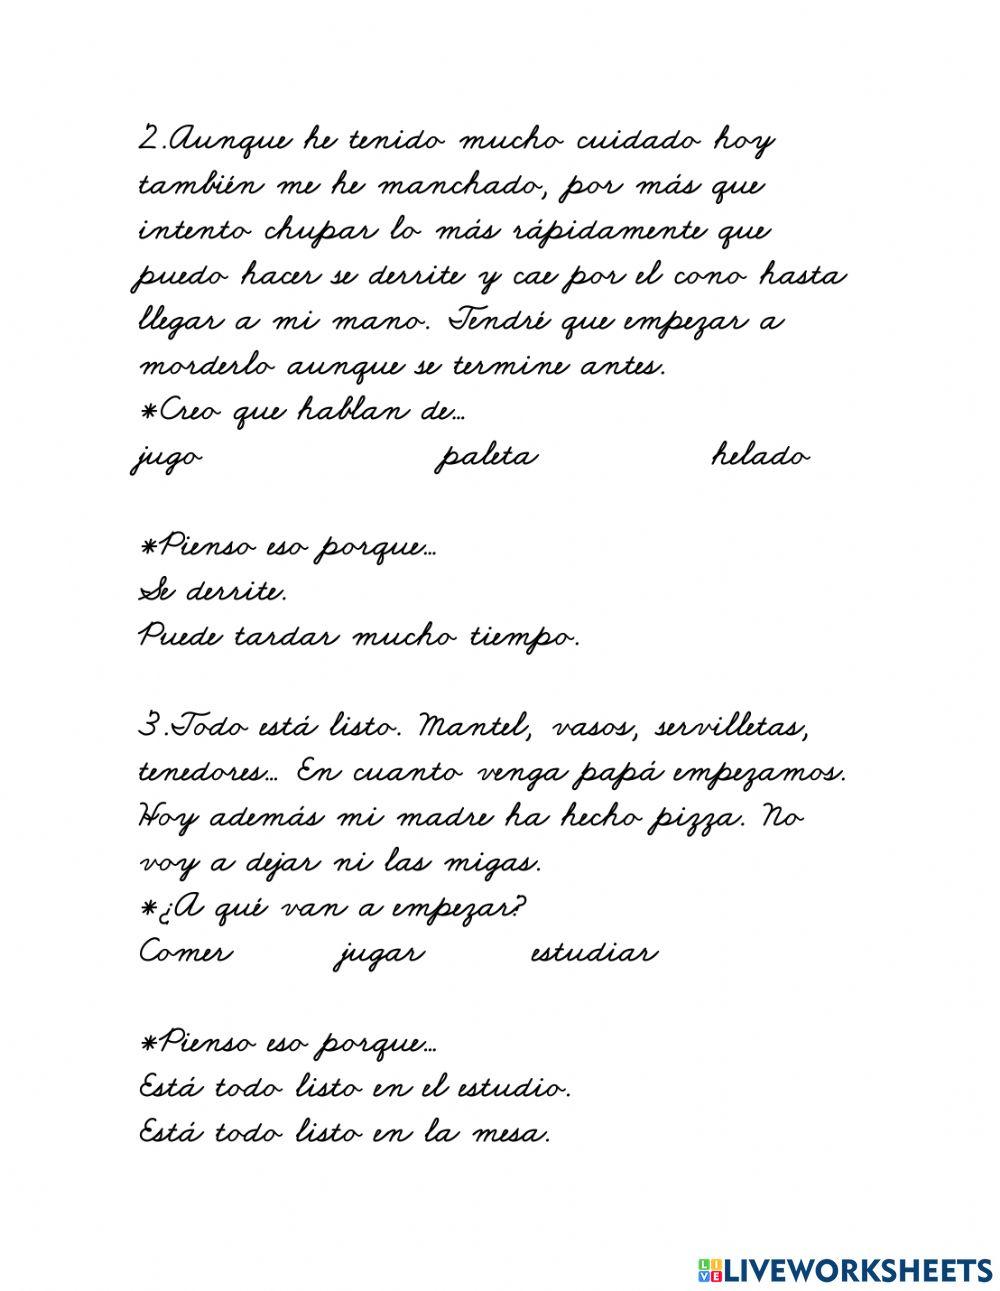 2.Aunque he tenido mucho cuidado hoy
también me he manchado, por más que
intento chupar lo más rápidamente que
puedo hacer se derrite y cae por el cono hasta
llegar a mi mano. Tendré que empezar a
morderlo aunque se termine antes.
*Creo que hablan de...
jugo paleta helado
*Pienso eso porque...
Se derrite.
Puede tardar mucho tiempo.
3.Todo está listo. Mantel, vasos, servilletas,
tenedores... En cuanto venga papá empezamos.
Hoy además mi madre ha hecho pizza. No
voy a dejar ni las migas.
*¿A qué van a empezar?
Comer jugar estudiar
*Pienso eso porque...
Está todo listo en el estudio.
Está todo listo en la mesa.
LIVE LIVEWORKSHEETS